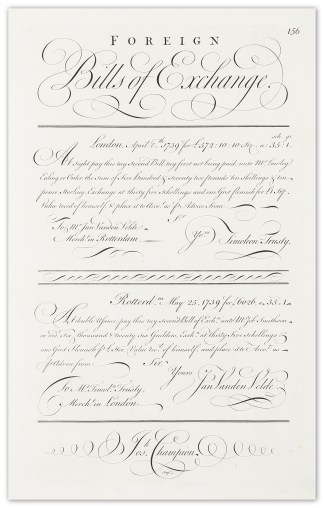 156
FOREIGN
Bills of Exchange.
sch. gr.
London, April 7th. 1739 for £572:10:10 Sterg. a 35:1.
At Sight pay this my Second Bill, my first not being paid, unto Mr. Lawley
Ealing or Order, the Sum of Five Hundred & Seventy two pounds ten Shillings & ten
pence Sterling Exchange at thirty five Schellings and one Grot flemish for £1 Sterg.
Value recd. of himself & place it to Accot. as Advice from
Sr.
To Mr. Jan Vanden Velde
Mercht. in Rotterdam
Yors.
Timoleon Trusty.
Rotterdm. May 25. 1739 for £6026, a 35.1
At double Usance, pay this my Second Bill of Exch. unto Mr. Job Smithson
or ord. Six Thousand & twenty six Guilders, Exch. at thirty five Schellings &
one Grot Flemish Value of himself, and place it to as
Advice from
Sir
Yours
To Mr. Timoln. Trusty,
Mercht. in London.
Jan Vanden Velde
Josh. Champion.